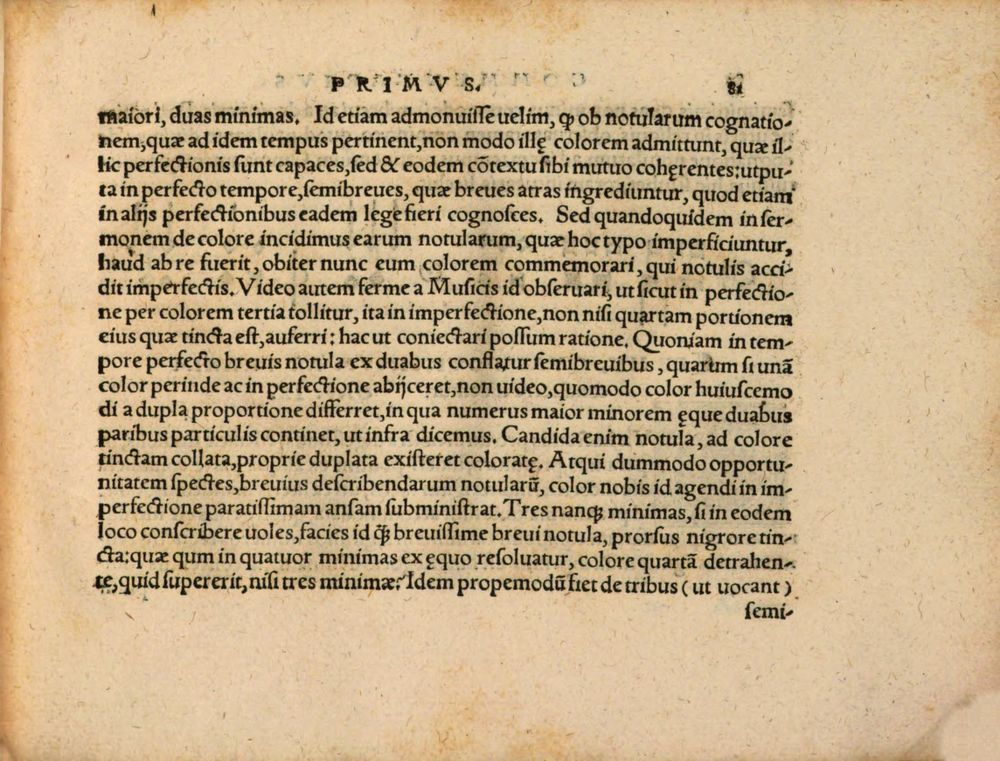 PRIMVS. 81
maiori, duas minimas. Id etiam admonuisse uelim, ꝙ ob notularum cognatio-
nem, quæ ad idem tempus pertinent, non modo illę colorem admittunt, quæ il-
lic perfectionis sunt capaces, sed & eodem cōtextu sibi mutuo cohęrentes: utpu-
ta in perfecto tempore, semibreues, quæ breues atras ingrediuntur, quod etiam
in alijs perfectionibus eadem lege fieri cognosces. Sed quandoquidem in ser-
monem de colore incidimus earum notularum, quæ hoc typo imperficiuntur,
haud ab re fuerit, obiter nunc eum colorem commemorari, qui notulis acci-
dit imperfectis. Video autem ferme a Musicis id obseruari, ut sicut in perfectio-
ne per colorem tertia tollitur, ita in imperfectione, non nisi quartam portionem
eius quæ tincta est, auferri: hac ut coniectari possum ratione. Quoniam in tem-
pore perfecto breuis notula ex duabus conflatur semibreuibus, quarum si unā
color perinde ac in perfectione abijceret, non uideo, quomodo color huiuscemo
di a dupla proportione differret, in qua numerus maior minorem ęque duabus
paribus particulis continet, ut infra dicemus. Candida enim notula, ad colore
tinctam collata, proprie duplata existeret coloratę. Atqui dummodo opportu-
nitatem spectes, breuius describendarum notularū, color nobis id agendi in im-
perfectione paratissimam ansam subministrat. Tres nanqꝫ minimas, si in eodem
loco conscribere uoles, facies id ꝗ̃ breuissime breui notula, prorsus nigrore tin-
cta: quæ qum in quatuor minimas ex ęquo resoluatur, colore quartā detrahen-
te, quid supererit, nisi tres minimæ? Idem propemodū fiet de tribus (ut uocant)
semi-